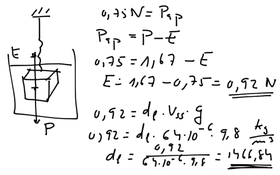 0,75 N = Pap
Pap = P - E
E
0,75 = 1,67 - E
E = 1,67 - 0,75 = 0,92 N
P
0,92 = dₑ · Vss · g
0,92 = dₑ · 64·10⁻⁶ · 9,8 kg/m³
dₑ = 0,92 / 64·10⁻⁶ · 9,8 = 1466,84